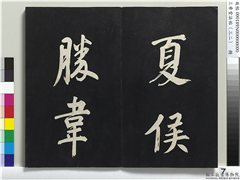 夏侯
勝韋